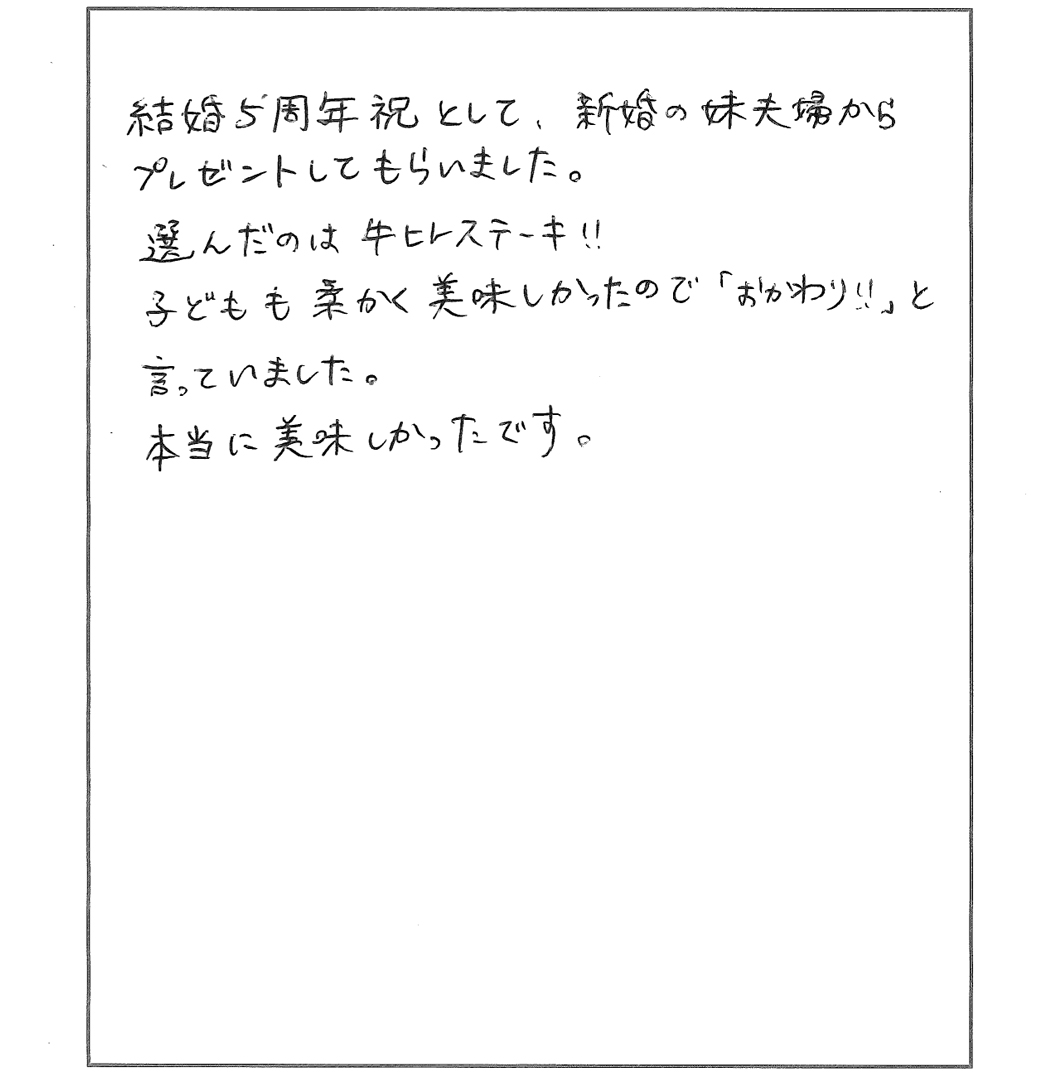 結婚5周年祝として、新婚の妹夫婦から
プレゼントしてもらいました。
選んだのは牛ヒレステーキ!!
子どもも柔かく美味しかったので「おかわり!!」と
言っていました。
本当に美味しかったです。